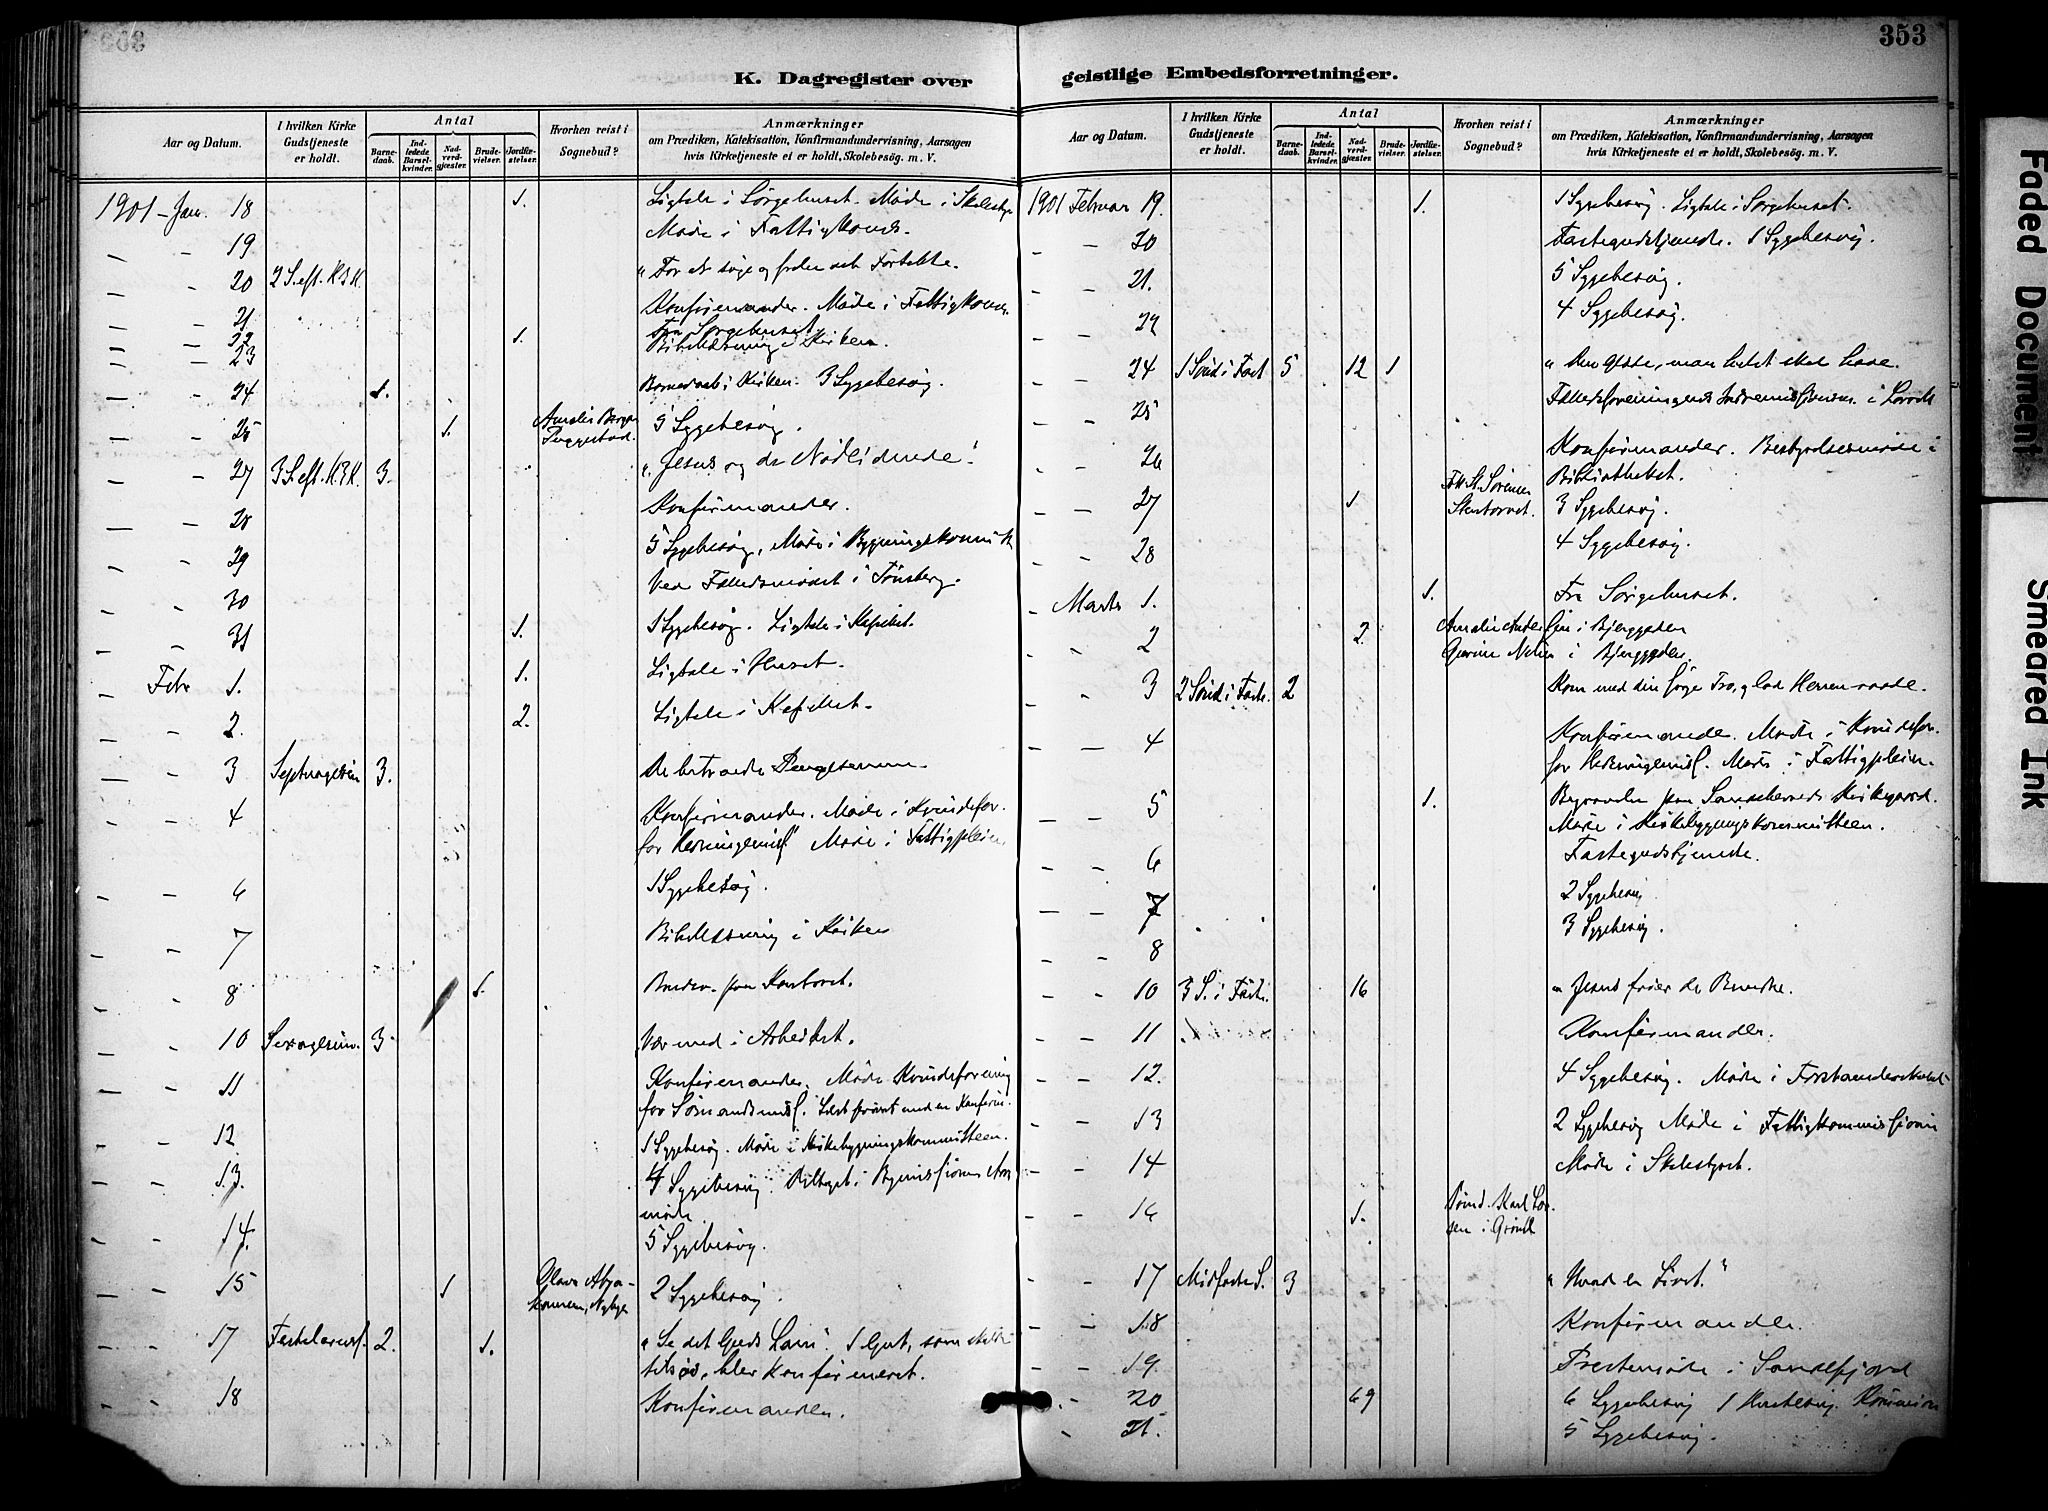 353
K. Dagregister over geistlige Embedsforretninger.
Aar og Datum.
I hvilken Kirke Gudstjeneste er holdt.
Antal
Barnedaab.
Indledede Barselkvinder.
Nadverdgjester.
Brudevielser.
Jordfæstelser.
Hvorhen reist i Sognebud?
Anmærkninger
om Prædiken, Katekisation, Konfirmandundervisning, Aarsagen
hvis Kirketjeneste ei er holdt, Skolebesøg. m. V.
1901 - Jan. 18 1. Ligtale i Sørgehuset. Møde i Skolestyr
- - 19 Møde i Fattigkomm.
- - 20 2 S. eft. H3K. "For at søge og frelse det Fortabte.
- - 21 Konfirmander. Møde i Fattigkomm.
- - 22 1. Fra Sørgehuset.
- - 23 Bibellæsning i Kirken.
- - 24 1. Barnedaab i Kirken. 3 Sygebesøg.
- - 25 1. 5 Sygebesøg.
- - 27 3 S. eft. H.3K. 3. "Jesus og de Nødlidende".
- - 28 Konfirmander.
- - 29 5 Sygebesøg, Møde i Bygningskomm
- - 30 Ved Fællesmødet i Tønsberg.
- - 31 1. 1 Sygebesøg. Ligtale i Kapellet.
- Febr 1. 1. Ligtale i Huset.
- - 2. 2. Ligtale i Kapellet.
- - 3 Septuagesim 3. De betroede Pengesummer.
- - 4 Konfirmander. Møde i Kvindefor.
for Hedningemiss. Møde i Fattigpleien
- - 6 1 Sygebesøg.
- - 7 Bibellæsning i Kirken
- - 8 1. Brudev. paa Kontoret.
- - 10 Sexagesim. 3. Vær med i Arbeidet.
- - 11 Konfirmander. Møde Kvindeforening
for Sømandsmiss. Læst privat med en Konfirm.
- - 12 1 Sygebesøg. Møde i Kirkebygningskommitteen.
- - 13. 4 Sygebesøg. Deltaget i Bymissionens Aars
møde
- - 14. 5 Sygebesøg.
- - 15 1 2 Sygebesøg.
- - 17 Fastelavnss. 2. 1. "Se det Guds Lam". 1 Gut, som skulde
tilsøs, blev konfirmeret.
- - 18 Konfirmander.
Aar og Datum.
I hvilken Kirke Gudstjeneste er holdt.
Antal
Barnedaab.
Indledede Barselkvinder.
Nadverdgjester.
Brudevielser.
Jordfæstelser.
Hvorhen reist i Sognebud?
Anmærkninger
om Prædiken, Katekisation, Konfirmandundervisning, Aarsagen
hvis Kirketjeneste ei er holdt, Skolebesøg. m. V.
1901 Februar 19. 1. 1 Sygebesøg. Ligtale i Sørgehuset.
- - 20 Fastegudstjeneste. 1 Sygebesøg.
- - 21. 5 Sygebesøg.
- - 22 4 Sygebesøg.
- - 24 1 Sønd i Fast 5 12 1 "Den Glæde, man ladet skal have.
- - 25
- - 26 Konfirmander. Bestyrelsesmøde i
Bibliotheket.
- - 27 1 3 Sygebesøg.
- - 28 4 Sygebesøg.
- Marts 1. 1. Fra Sørgehuset.
- - 2 2. Amalie Andersen i Bjerggaden
i Bjerggaden.
- - 3 2 Sønd i Faste. 2 Kom med din Sorg Tro, og lad Herren raade.
- - 4 Konfirmander. Møde i Kvindefor.
for Hedningemiss. Møde i Fattigpleien.
- - 5 1. Begravelse paa Sandeherreds Kirkegaard.
Møde i Kirkebygningskommitteen.
- - 6 Fastegudstjeneste.
- - 7 2 Sygebesøg
- - 8 3 Sygebesøg.
- - 10 3 S. i Faste. 16 "Jesus frier de Bundne.
- - 11 Konfirmander.
- - 12. 4 Sygebesøg. Møde i Forstanderskabet
- - 13 2 Sygebesøg Møde i Fattigkommissionen
- - 14 Møde i Skolestyret.
- - 16 1. Sømd. Karl Larsen i Grønli
- - 17 Midfaste S. 3 "Hvad er Livet."
- - 18 Konfirmander.
- - 19. Prestemøde i Sandefjord
- - 20 69 6 Sygebesøg 1 Husbesøg. Kommunion
- 21. 5 Sygebesøg.
Faded Document
Smeared Ink